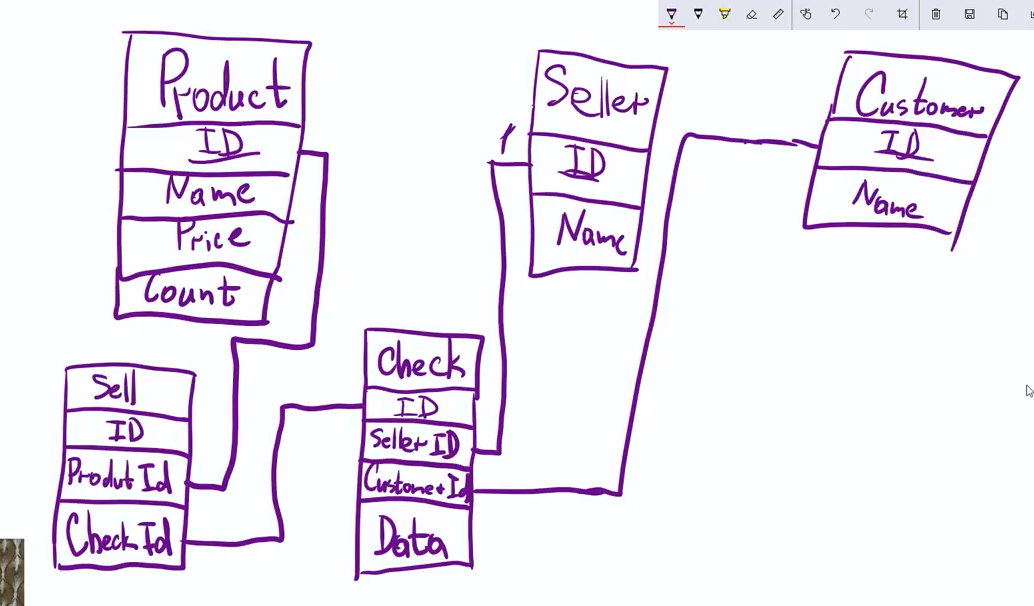 Product
ID
Name
Price
Count
Seller
1
ID
Name
Customer
ID
Name
Sell
ID
Produt Id
Check Id
Check
ID
Seller ID
Customer Id
Data